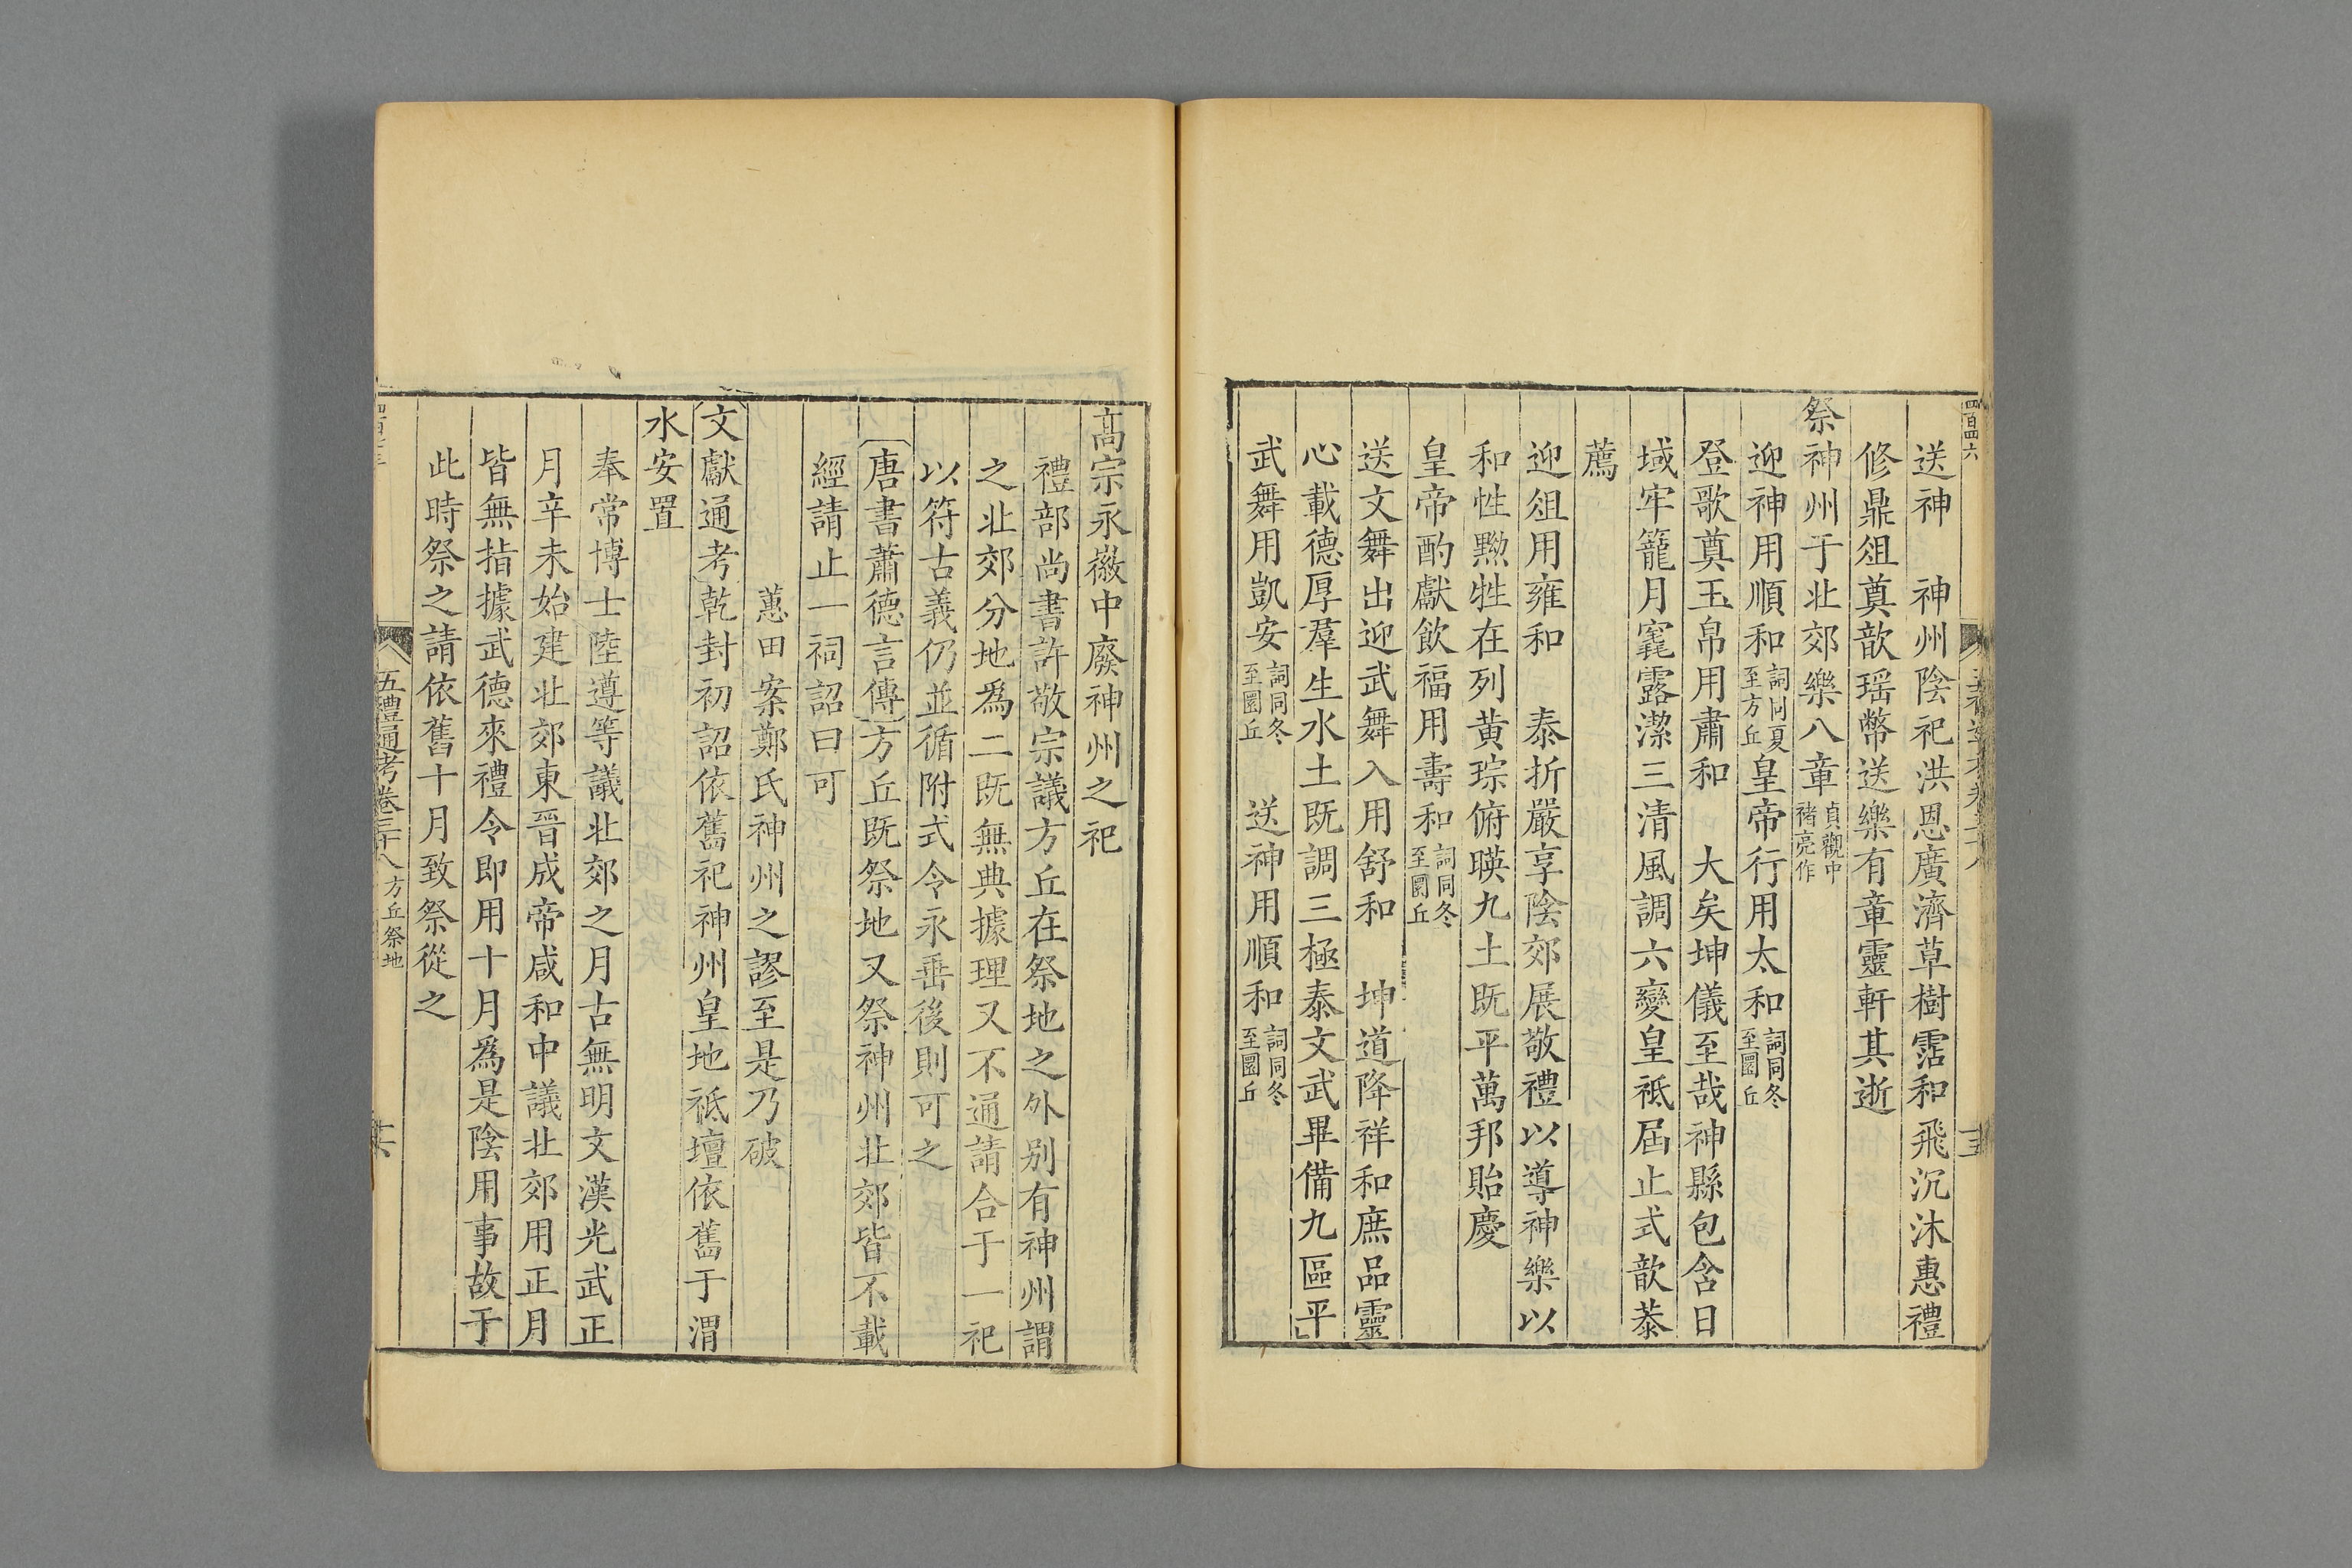 送神　神州陰祀洪恩廣濟草樹霑和飛沉沐惠禮
修鼎俎奠歆瑤幣送樂有章靈軒其逝
祭神州于北郊樂八章貞觀中褚亮作
迎神用順和詞同夏至方丘皇帝行用太和詞同冬至圜丘
登歌奠玉帛用肅和　大矣坤儀至哉神縣包含日
域牢籠月竁露潔三清風調六變皇祗屆止式歆恭
薦
迎俎用雍和　泰折嚴享陰郊展敬禮以導神樂以
和性黝牲在列黄琮俯暎九土既平萬邦貽慶
皇帝酌獻飲福用壽和詞同冬至圜丘
送文舞出迎武舞入用舒和　坤道降祥和庶品靈
心載德厚羣生水土既調三極泰文武畢備九區平
武舞用凱安詞同冬至圜丘　送神用順和詞同冬至圜丘
高宗永徽中廢神州之祀
禮部尚書許敬宗議方丘在祭地之外别有神州謂
之北郊分地爲二既無典據理又不通請合于一祀
以符古義仍並循附式令永垂後則可之
〔唐書蕭德言傳〕方丘既祭地又祭神州北郊皆不載
經請止一祠詔曰可
蕙田案鄭氏神州之謬至是乃破
〔文獻通考〕乾封初詔依舊祀神州皇地祗壇依舊于渭
水安置
奉常博士陸遵等議北郊之月古無明文漢光武正
月辛未始建北郊東晉成帝咸和中議北郊用正月
皆無指據武德來禮令即用十月爲是陰用事故于
此時祭之請依舊十月致祭從之
五禮通考卷三十八方丘祭地